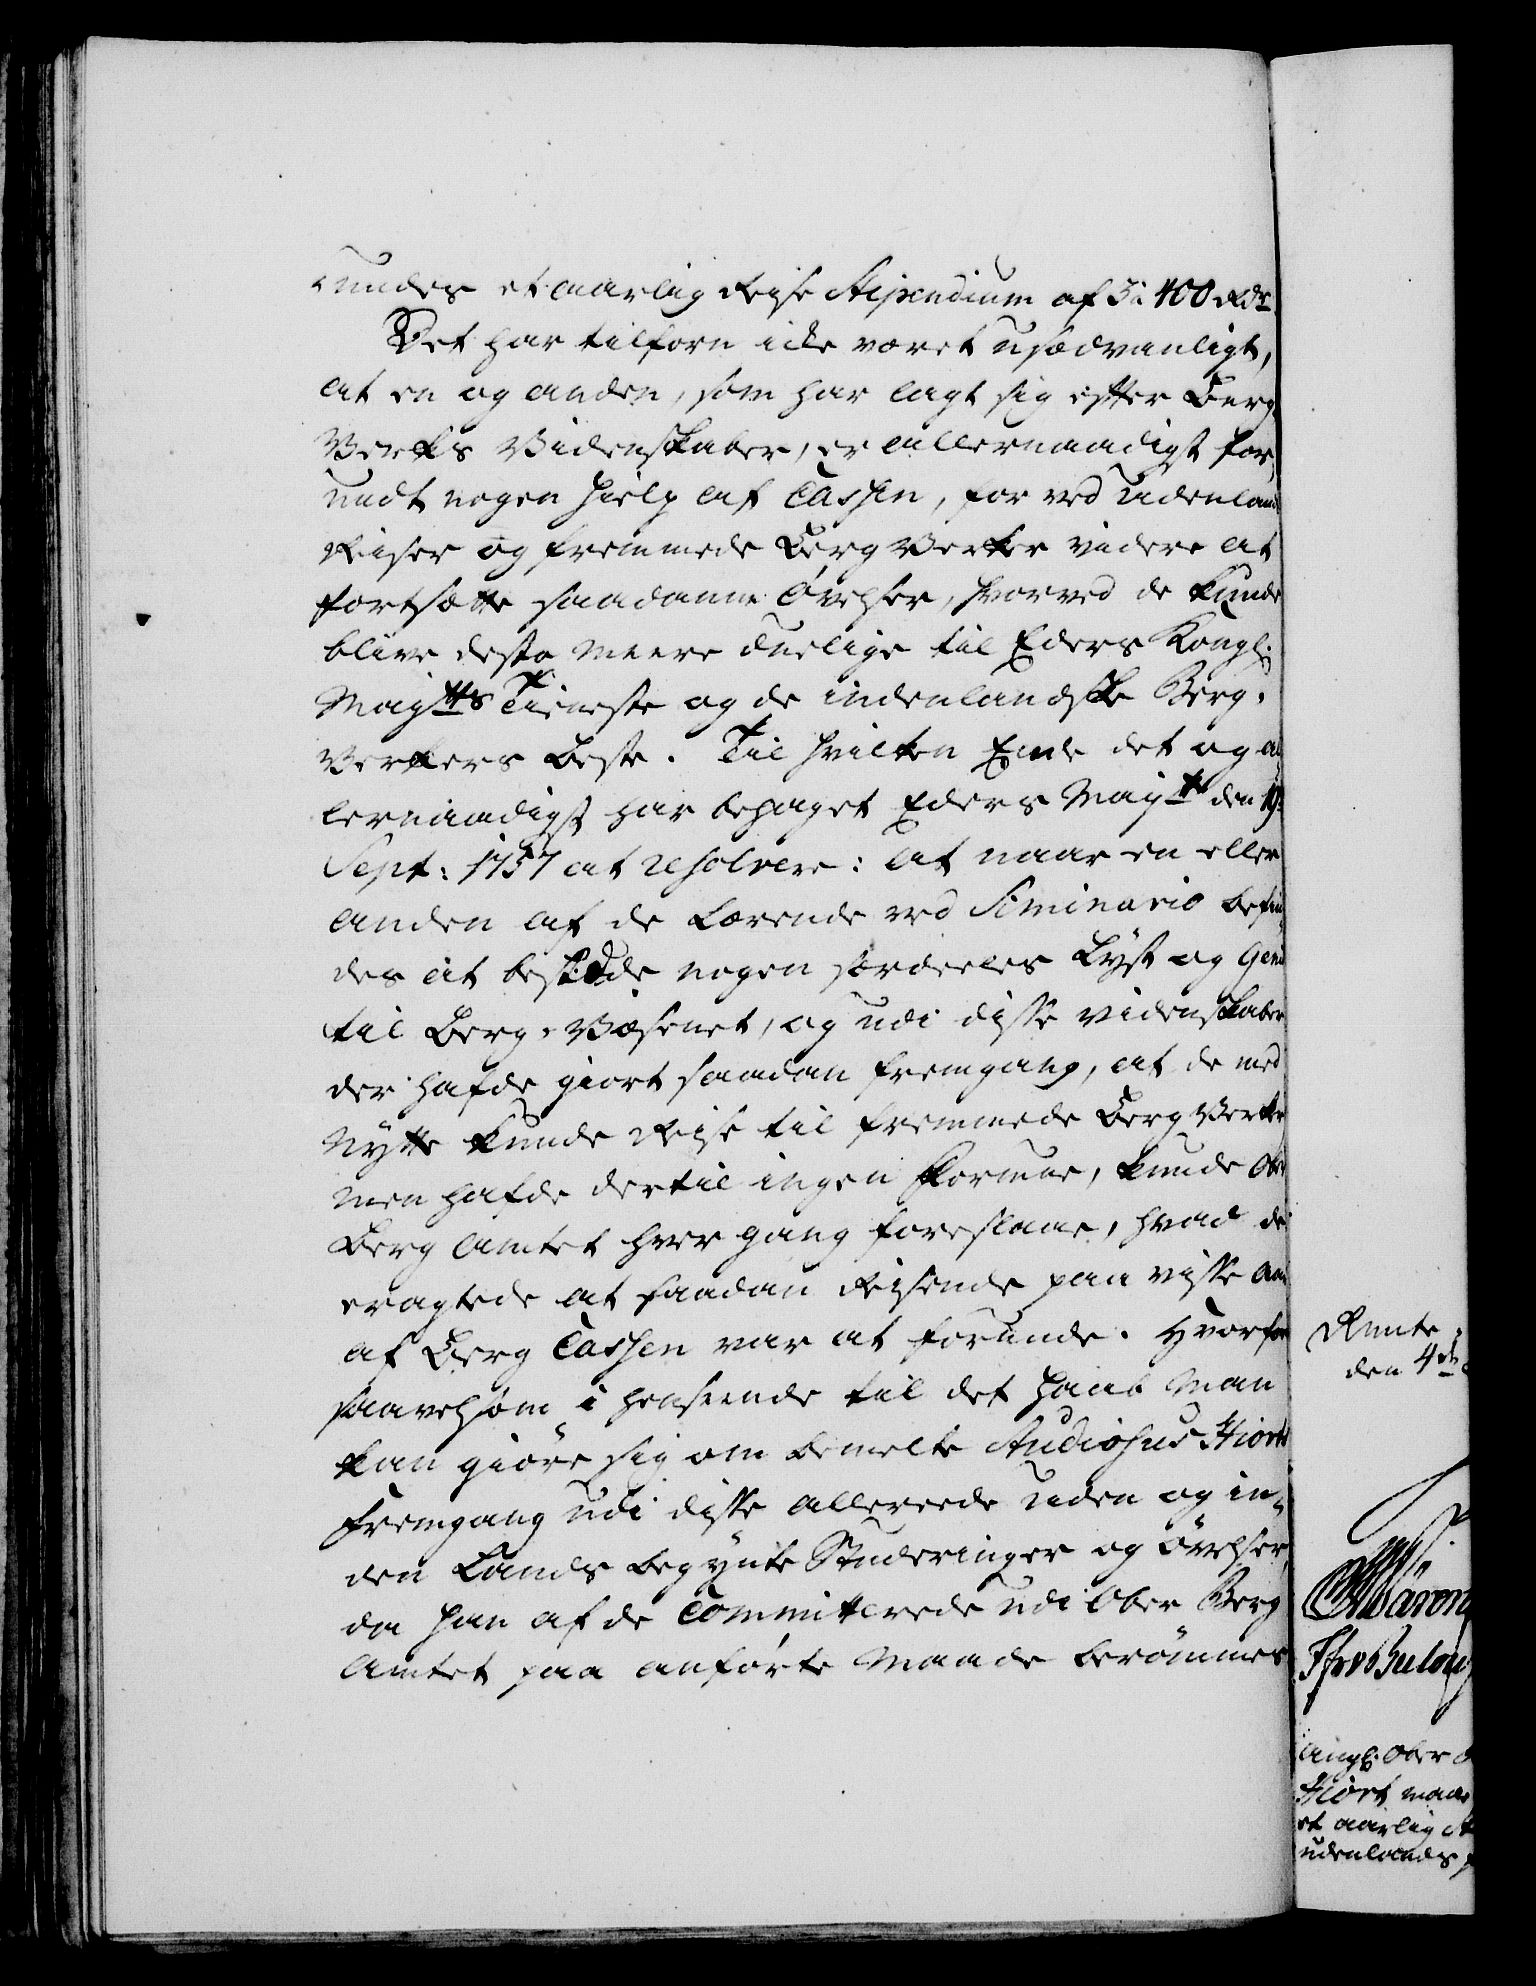 undes et aarlig Reise Stipendium af 3 a 400 Rdr.
Det har tilforn icke været usædvanligt,
at en og anden, som har lagt sig efter Berg-
Verks Videnskaber, er allernaadigst for-
undt nogen Hielp af Cassen, for ved udenland
Reiser og fremmede Berg Verker videre at
fortsætte saadanne Øvelser, hvorved de kunde
blive desto meere duelige til Eders Kongl.
Maytts Tieneste og de indenlandske Berg-
Verkers Beste. Til hvilken Ende det og al
lernaadigst har behaget Eders Maytt den 19
Sept: 1757 at resolvere: at naar en eller
anden af de Lærende ved Seminario befin
des at besidde nogen særdeeles Lyst og Geni
til Berg-Væsenet, og udi disse Videnskaber
der hafde giort saadan fremgang, at de med
Nytte kunde Reise til fremmede Berg Verker
men hafde dertil ingen Formue, kunde Ober
Berg Amtet hver gang foreslaae, hvad de
eragtede at saadan Reisende paa visse Aar
af Berg Cassen var at forunde. Hvorfor
saavelsom i henseende til det Haab man
kan giøre sig om bemelte Studiosus Hiorts
Fremgang udi disse allereede uden og in-
den Lands begynte Studeringer og Øvelser,
da han af de Committerede udi Ober Berg
Amtet paa anførte Maade berømmes
Rente
den 4de
Hiort maae
et aarlig
udenlands